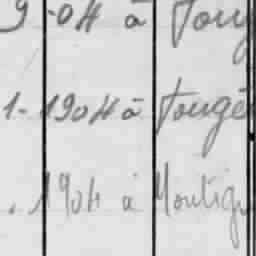 9-04 à Foug
1-1904 à Fougè
.1904 à Montign